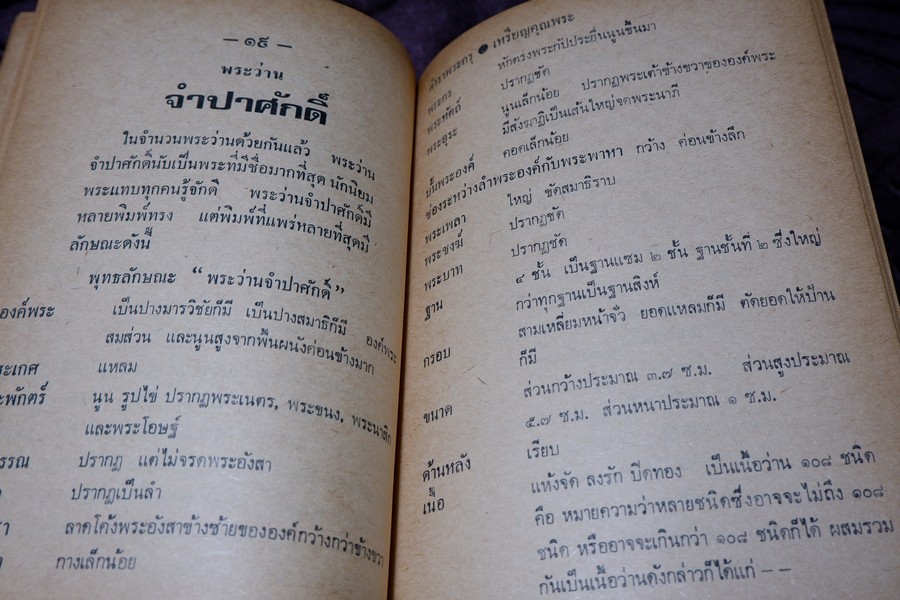 — ๑๙ —
พระว่าน
จำปาศักดิ์
ในจำนวนพระว่านด้วยกันแล้ว พระว่าน
จำปาศักดิ์นับเป็นพระที่มีชื่อมากที่สุด นักนิยม
พระแทบทุกคนรู้จักดี พระว่านจำปาศักดิ์มี
หลายพิมพ์ทรง แต่พิมพ์ที่แพร่หลายที่สุดมี
ลักษณะดังนี้
พุทธลักษณะ “พระว่านจำปาศักดิ์”
องค์พระ เป็นปางมารวิชัยก็มี เป็นปางสมาธิก็มี องค์พระ
สมส่วน และนูนสูงจากพื้นผนังค่อนข้างมาก
ระเกศ แหลม
ะพักตร์ นูน รูปไข่ ปรากฏพระเนตร, พระขนง, พระนาสิก
และพระโอษฐ์
รรณ ปรากฏ แต่ไม่จรดพระอังสา
ปรากฏเป็นลำ
สา ลาดโค้งพระอังสาข้างซ้ายขององค์กว้างกว่าข้างขวา
กางเล็กน้อย
ตำราพระกรุ เหรียญคุณพระ
พระกร หักตรงพระกัประยื่นนูนขึ้นมา
พระหัตถ์ ปรากฏชัด
พระอุระ นูนเล็กน้อย ปรากฏพระเต้าข้างขวาขององค์พระ
มีสังฆาฏิเป็นเส้นใหญ่จดพระนาภี
บั้นพระองค์ คอดเล็กน้อย
ช่องระหว่างลำพระองค์กับพระพาหา กว้าง ค่อนข้างลึก
พระเพลา ใหญ่ ขัดสมาธิราบ
พระชงฆ์ ปรากฏชัด
พระบาท ปรากฏชัด
ฐาน ๔ ชั้น เป็นฐานแซม ๒ ชั้น ฐานชั้นที่ ๒ ซึ่งใหญ่
กว่าทุกฐานเป็นฐานสิงห์
กรอบ สามเหลี่ยมหน้าจั่ว ยอดแหลมก็มี ตัดยอดให้ป้าน
ก็มี
ขนาด ส่วนกว้างประมาณ ๓.๗ ซ.ม. ส่วนสูงประมาณ
๕.๗ ซ.ม. ส่วนหนาประมาณ ๑ ซ.ม.
ด้านหลัง เรียบ
เนื้อ แห้งจัด ลงรัก ปิดทอง เป็นเนื้อว่าน ๑๐๘ ชนิด
คือ หมายความว่าหลายชนิดซึ่งอาจจะไม่ถึง ๑๐๘
ชนิด หรืออาจจะเกินกว่า ๑๐๘ ชนิดก็ได้ ผสมรวม
กันเป็นเนื้อว่านดังกล่าวก็ได้แก่ — —